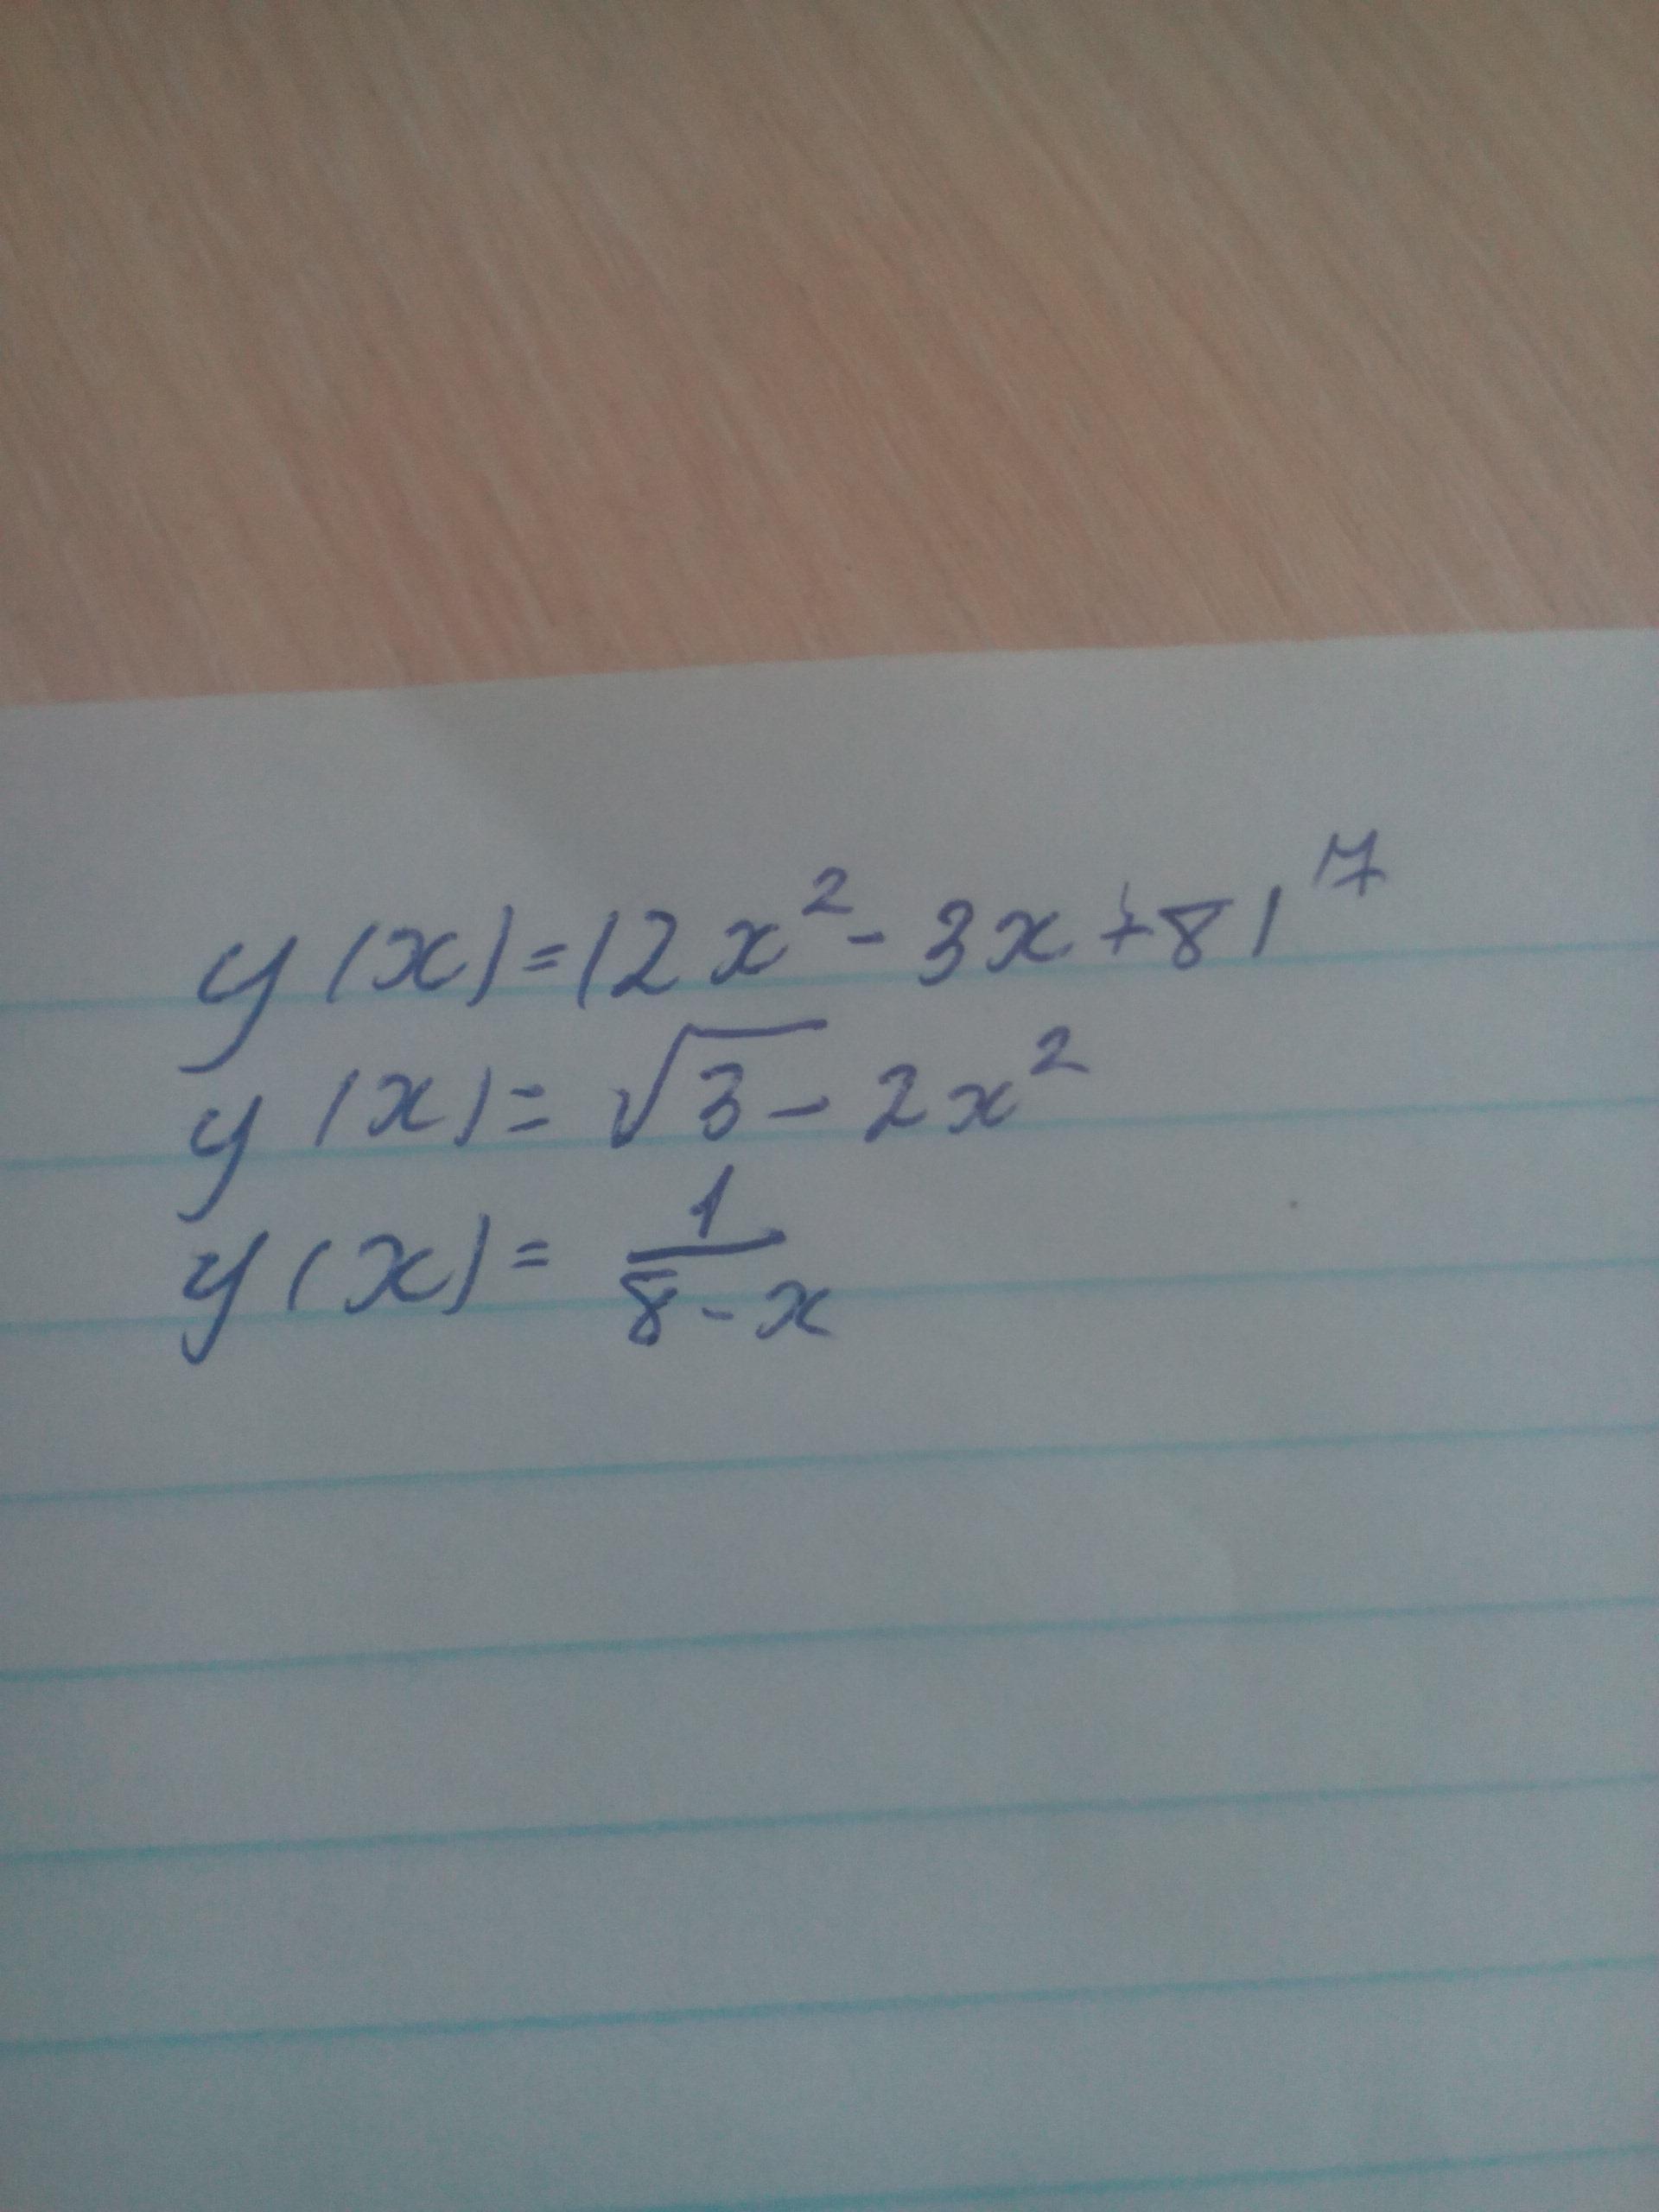 y(x)=(2x²-3x+8)⁷
y(x)=√3-2x²
y(x)=1/(8-x)